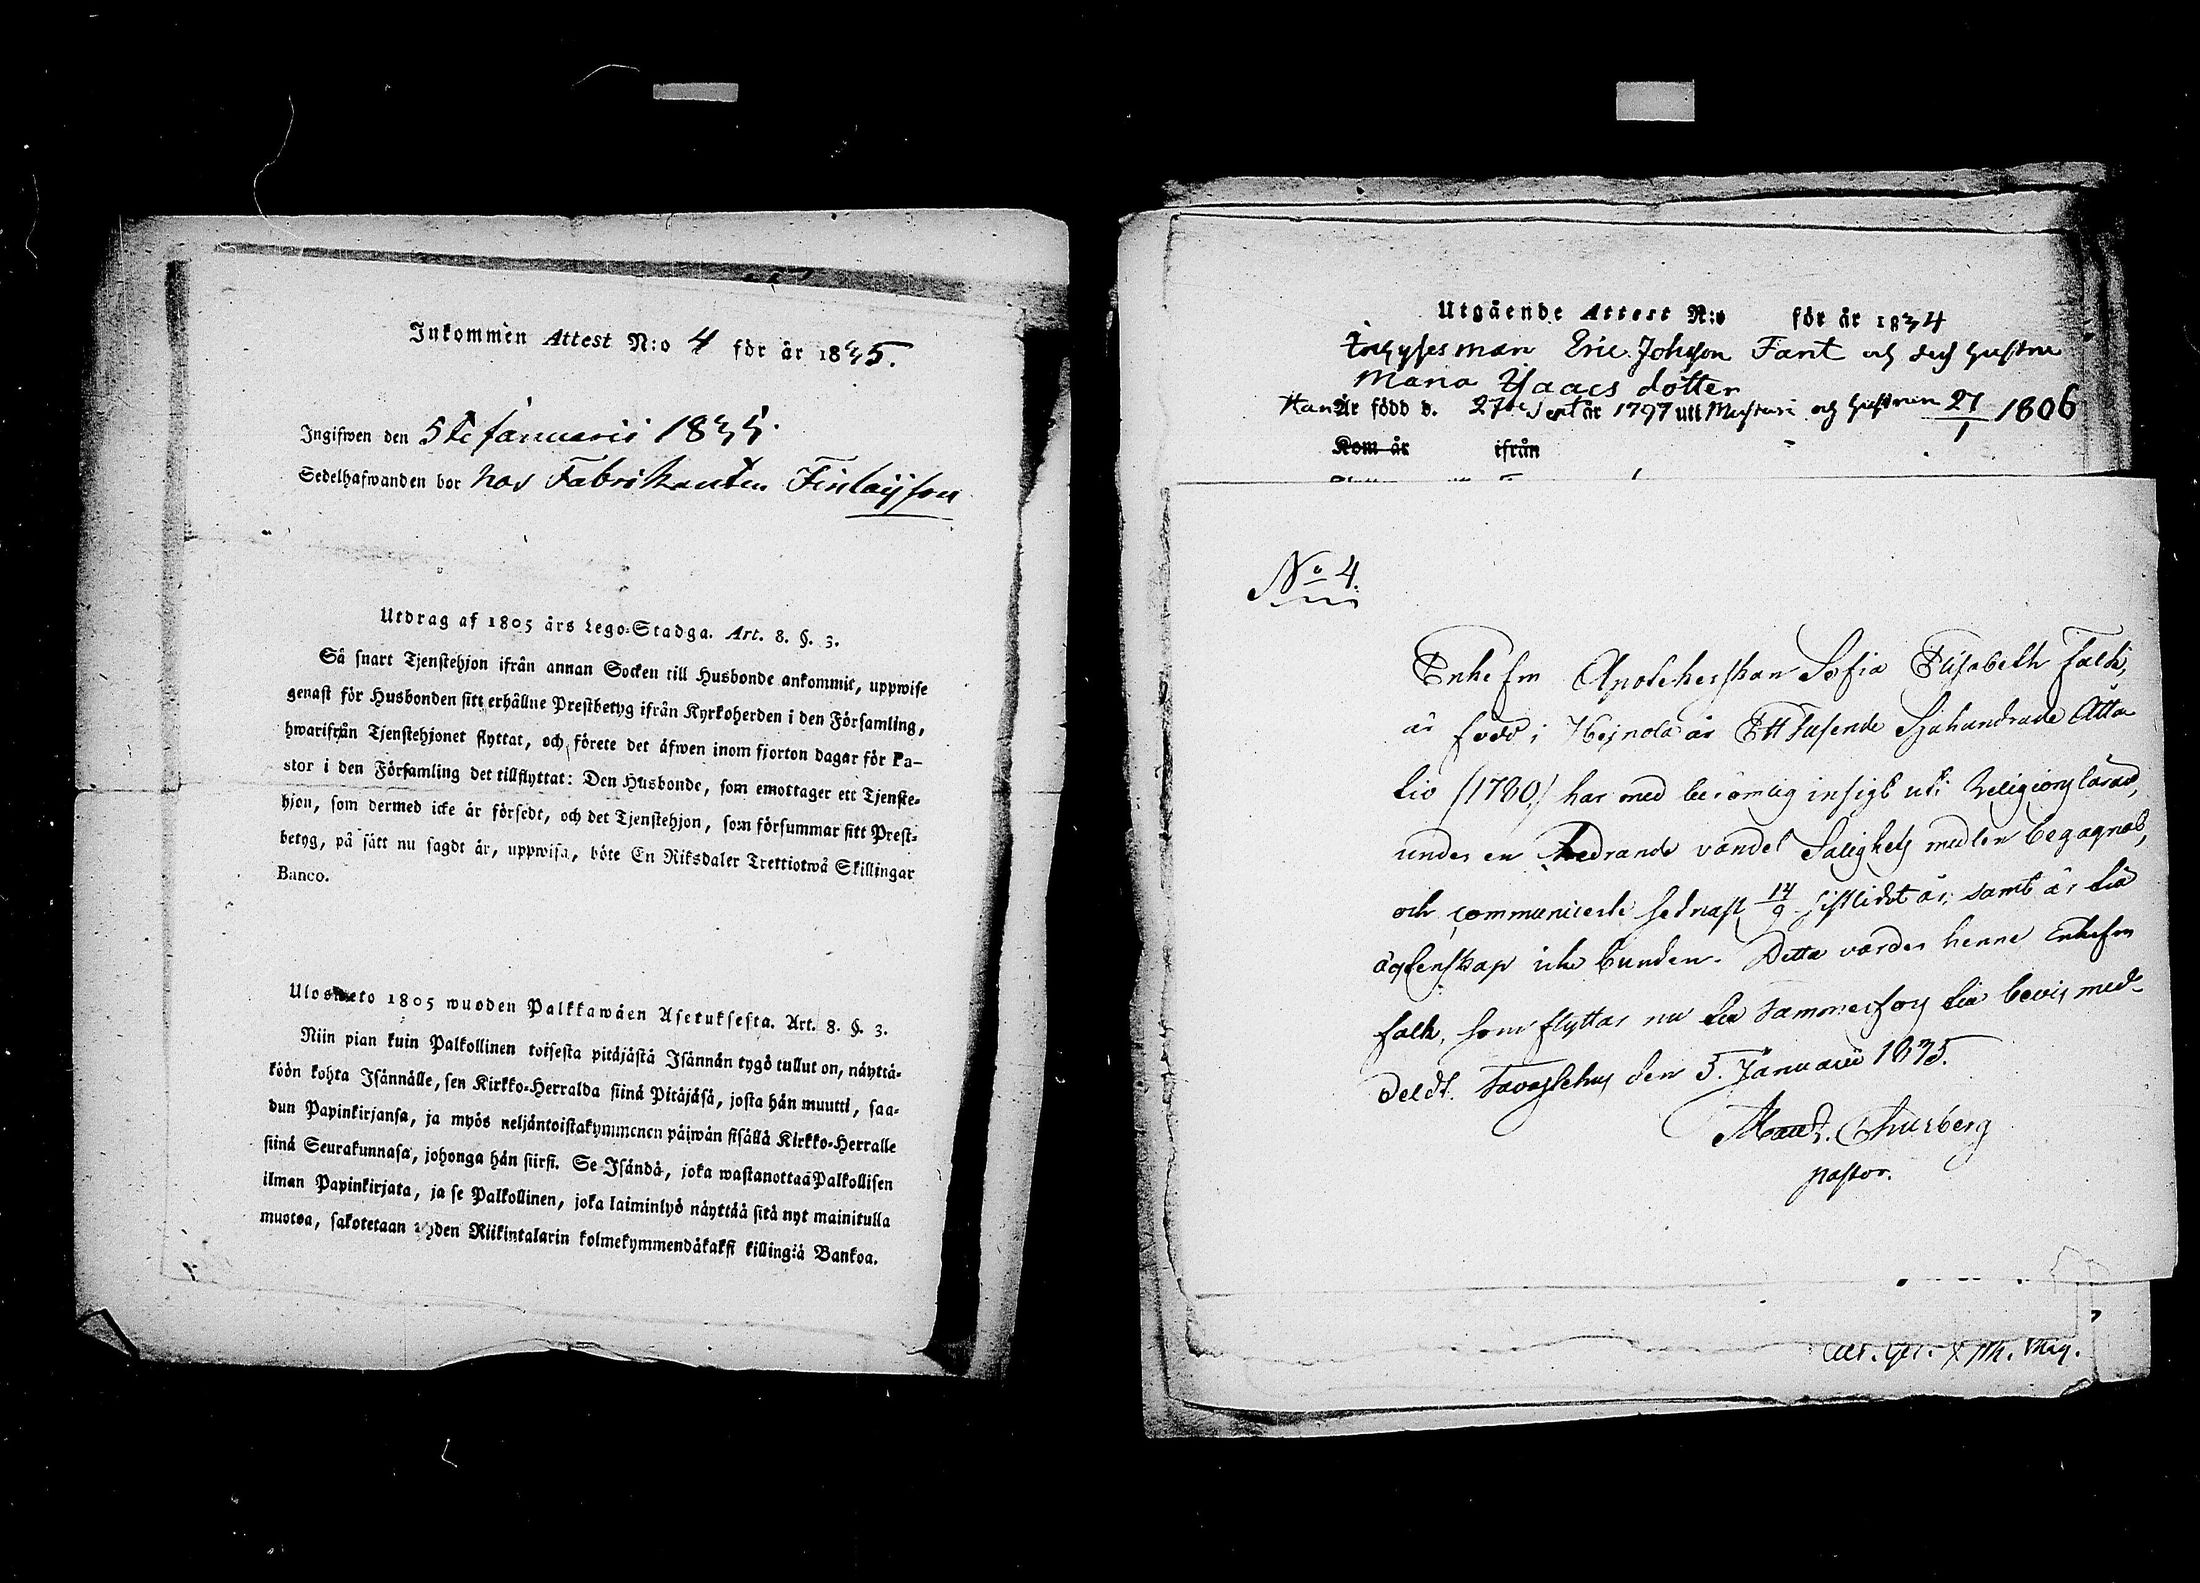 Inkommen Attest N:o 4 för år 1835.
Ingifwen den 5te Januarii 1835.
Sedelhafwanden bor hos Fabrikanten Finlayson
Utdrag af 1805 års Lego-Stadga. Art. 8. §. 3.
Så snart Tjenstehjon ifrån annan Socken till Husbonde ankommit, uppwise
genast för Husbonden sitt erhållne Prestbetyg ifrån Kyrkoherden i den Församling,
hwarifrån Tjenstehjonet flyttat, och förete det äfwen inom fjorton dagar för Pa-
stor i den Församling det tillflyttat: Den Husbonde, som emottager ett Tjenste-
hjon, som dermed icke är försedt, och det Tjenstehjon, som försummar sitt Prest-
betyg, på sätt nu sagdt är, uppwisa, böte En Riksdaler Trettiotwå Skillingar
Banco.
Ulosweto 1805 wuoden Palkkawäen Asetuksesta. Art. 8. §. 3.
Niin pian kuin Palkollinen toisesta pitäjästä Isännän tygö tullut on, näyttä-
köön kohta Isännälle, sen Kirkko-Herralda siinä Pitäjäsä, josta hän muutti, saa-
dun Papinkirjansa, ja myös neljäntoistakymmenen päiwän sisällä Kirkko-Herralle
siinä Seurakunnasa, johonga hän siirsi. Se Isändä, joka wastanottaa Palkollisen
ilman Papinkirjata, ja se Palkollinen, joka laiminlyö näyttää sitä nyt mainitulla
muotoa, sakotetaan yhden Riikintalarin kolmekymmendäkaksi killingiä Bankoa.
Utgående Attest N:o för år 1834
Inhysesman Eric Johsson Fant och dess hustru
Maria Isaacs dotter
Han Är född d. 27de Sept år 1797 uti Messuri och hustrun 27/1 1806
Kom år ifrån
No 4.
Enkefru Apothekerskan Sofia Elisabeth Falk,
är född i Heinola år Ett tusende Sjuhundrade Åtta
tio (1780) har med berömlig insigt uti Religions läran,
under en hedrande vandel Salighets medlen begagnat,
och communicerte sednast 14/9 sistlidet år, samt är till
ägtenskap icke bunden. Detta varder henne Enkefru
Falk, som flyttar nu till Tammerfors till bevis med-
deldt. Tavastehus den 5. Januarii 1835.
Churberg
Pastor.